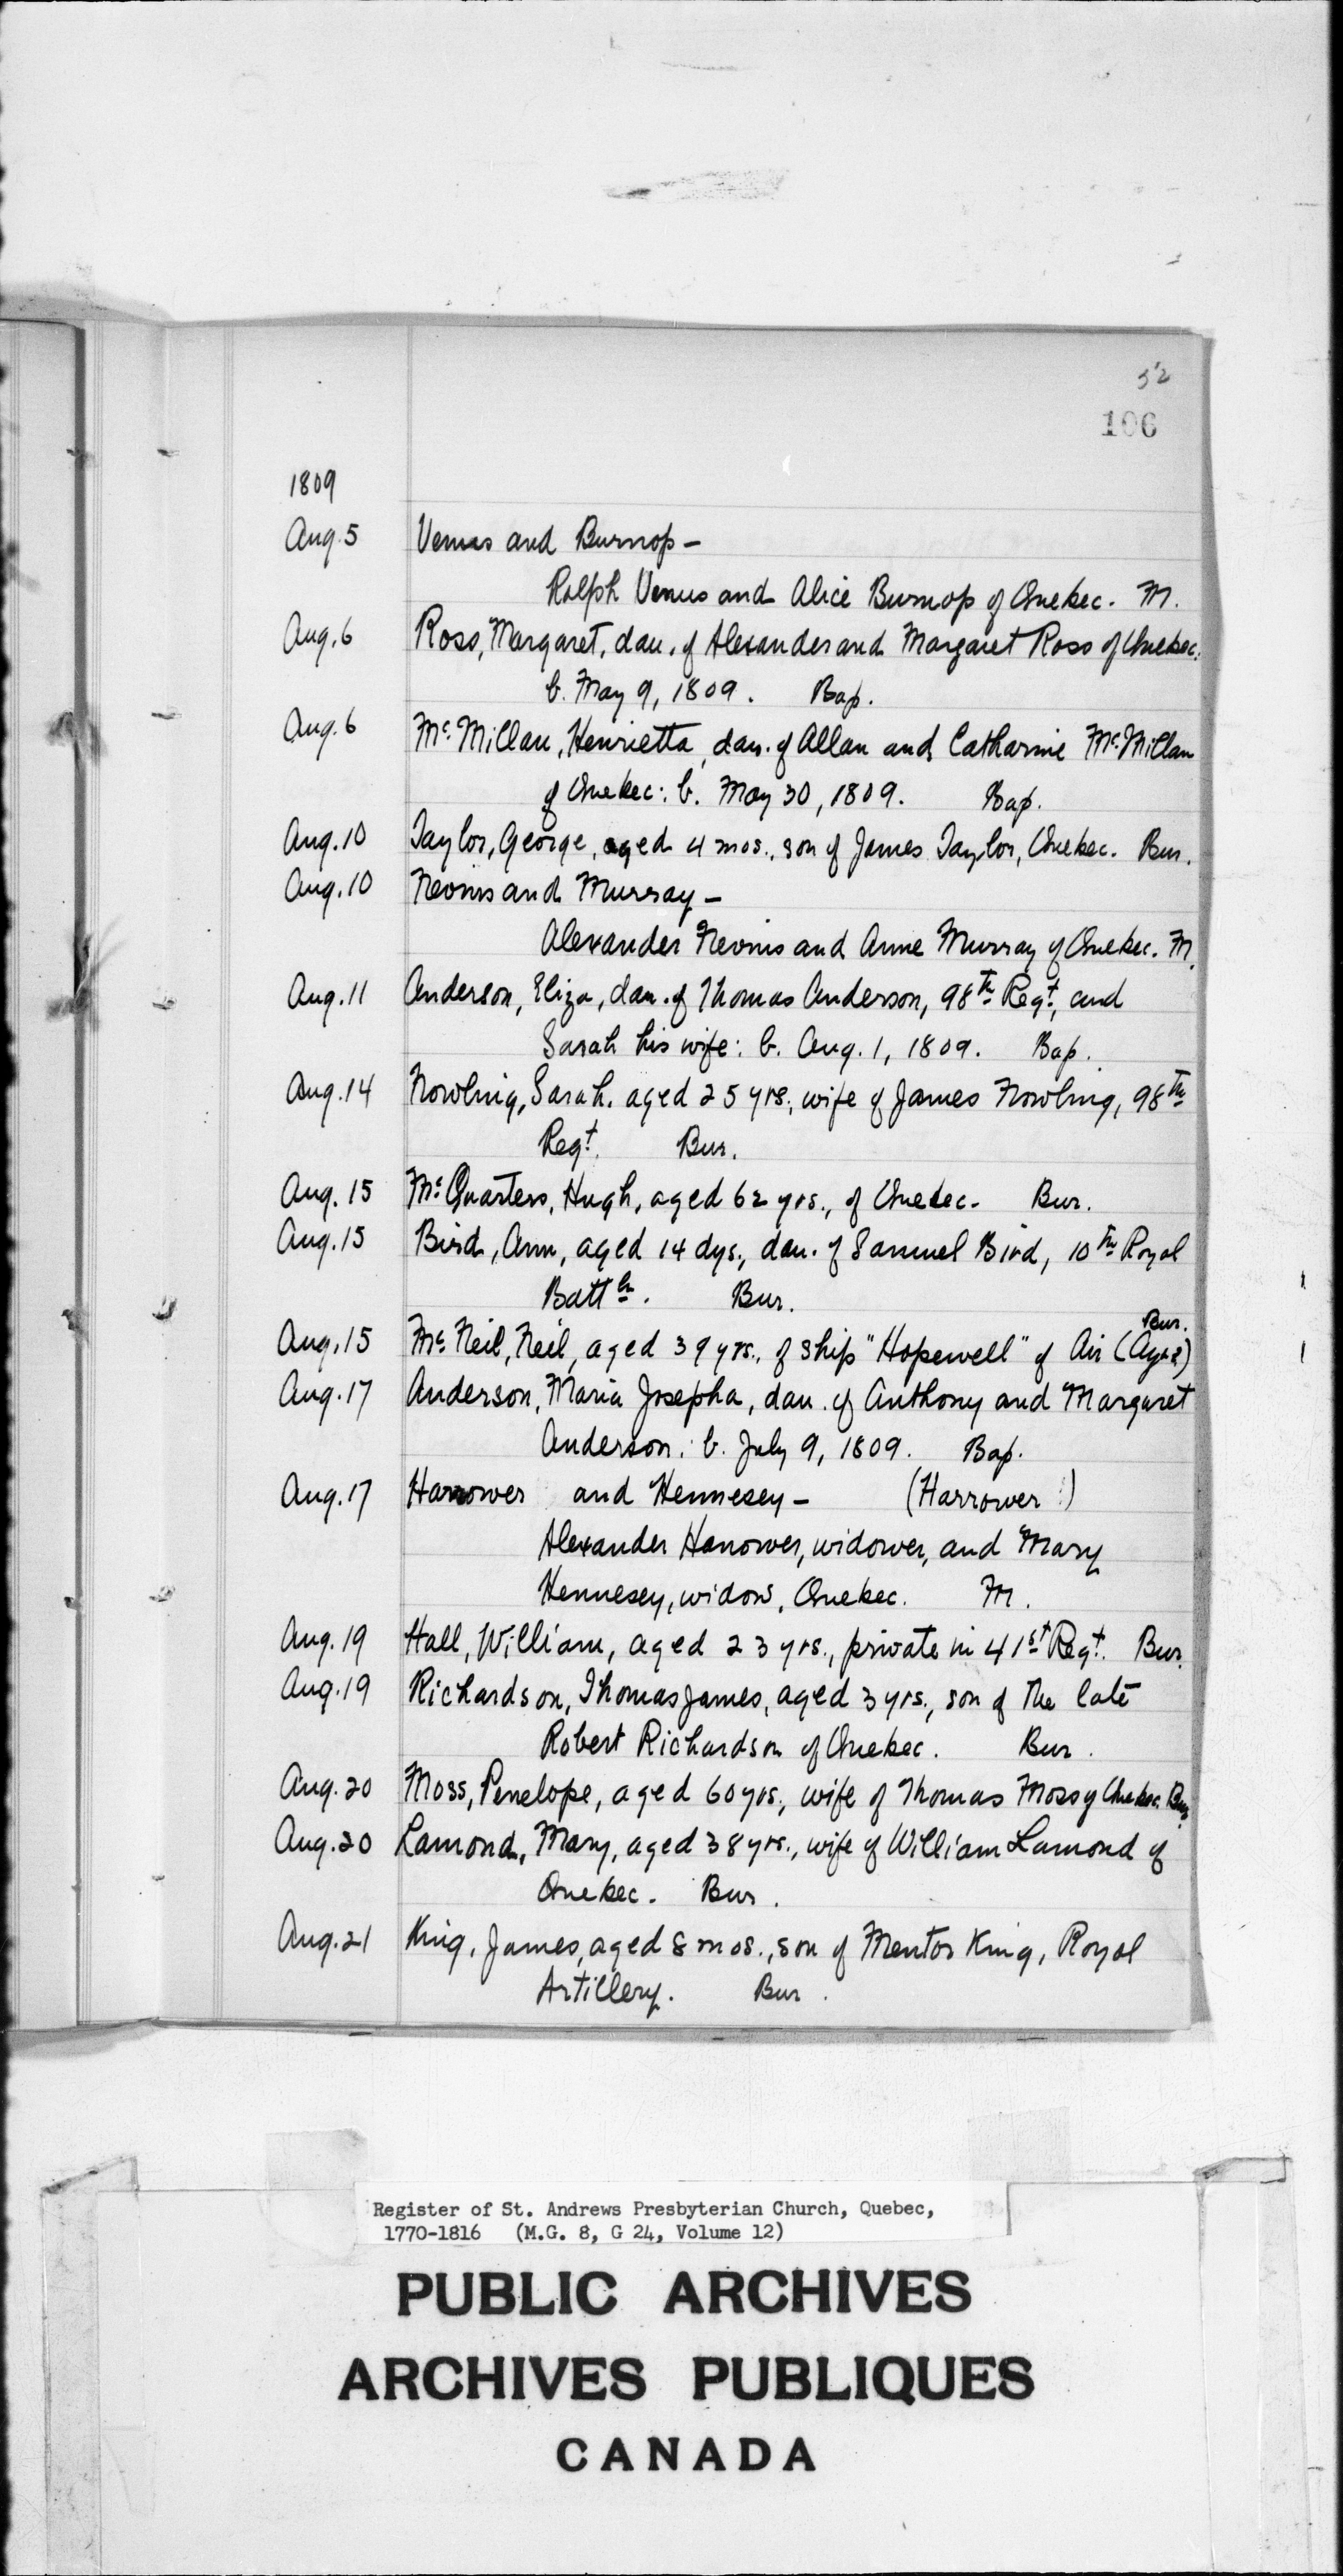 52
106
1809
Aug. 5 Venus and Burnop -
Ralph Venus and Alice Burnop of Quebec. M.
Aug. 6 Ross, Margaret, dau. of Alexander and Margaret Ross of Quebec.
b. May 9, 1809. Bap.
Aug. 6 McMillan, Henrietta, dau. of Allan and Catharine McMillan
of Quebec: b. May 30, 1809. Bap.
Aug. 10 Taylor, George, aged 4 mos., son of James Taylor, Quebec. Bur.
Aug. 10 Nevins and Murray -
Alexander Nevins and Anne Murray of Quebec. M.
Aug. 11 Anderson, Eliza, dau. of Thomas Anderson, 98th Regt, and
Sarah his wife: b. Aug. 1, 1809. Bap.
Aug. 14 Nowling, Sarah, aged 25 yrs., wife of James Nowling, 98th
Regt. Bur.
Aug. 15 McQuarters, Hugh, aged 62 yrs., of Quebec. Bur.
Aug. 15 Bird, Ann, aged 14 dys., dau. of Samuel Bird, 10th Royal
Battn. Bur.
Aug. 15 McNeil, Neil, aged 39 yrs., of ship "Hopewell" of Air (Ayr?) Bur.
Aug. 17 Anderson, Maria Josepha, dau. of Anthony and Margaret
Anderson: b. July 9, 1809. Bap.
Aug. 17 Hanower and Hennesey - (Harrower!)
Alexander Hanower, widower, and Mary
Hennesey, widow, Quebec. M.
Aug. 19 Hall, William, aged 23 yrs., private in 41st Regt. Bur.
Aug. 19 Richardson, Thomas James, aged 3 yrs., son of the late
Robert Richardson of Quebec. Bur.
Aug. 20 Moss, Penelope, aged 60 yrs., wife of Thomas Moss of Quebec. Bur.
Aug. 20 Lamond, Mary, aged 38 yrs., wife of William Lamond of
Quebec. Bur.
Aug. 21 King, James, aged 8 mos., son of Mentor King, Royal
Artillery. Bur.
Register of St. Andrews Presbyterian Church, Quebec,
1770-1816 (M.G. 8, G 24, Volume 12)
PUBLIC ARCHIVES
ARCHIVES PUBLIQUES
CANADA